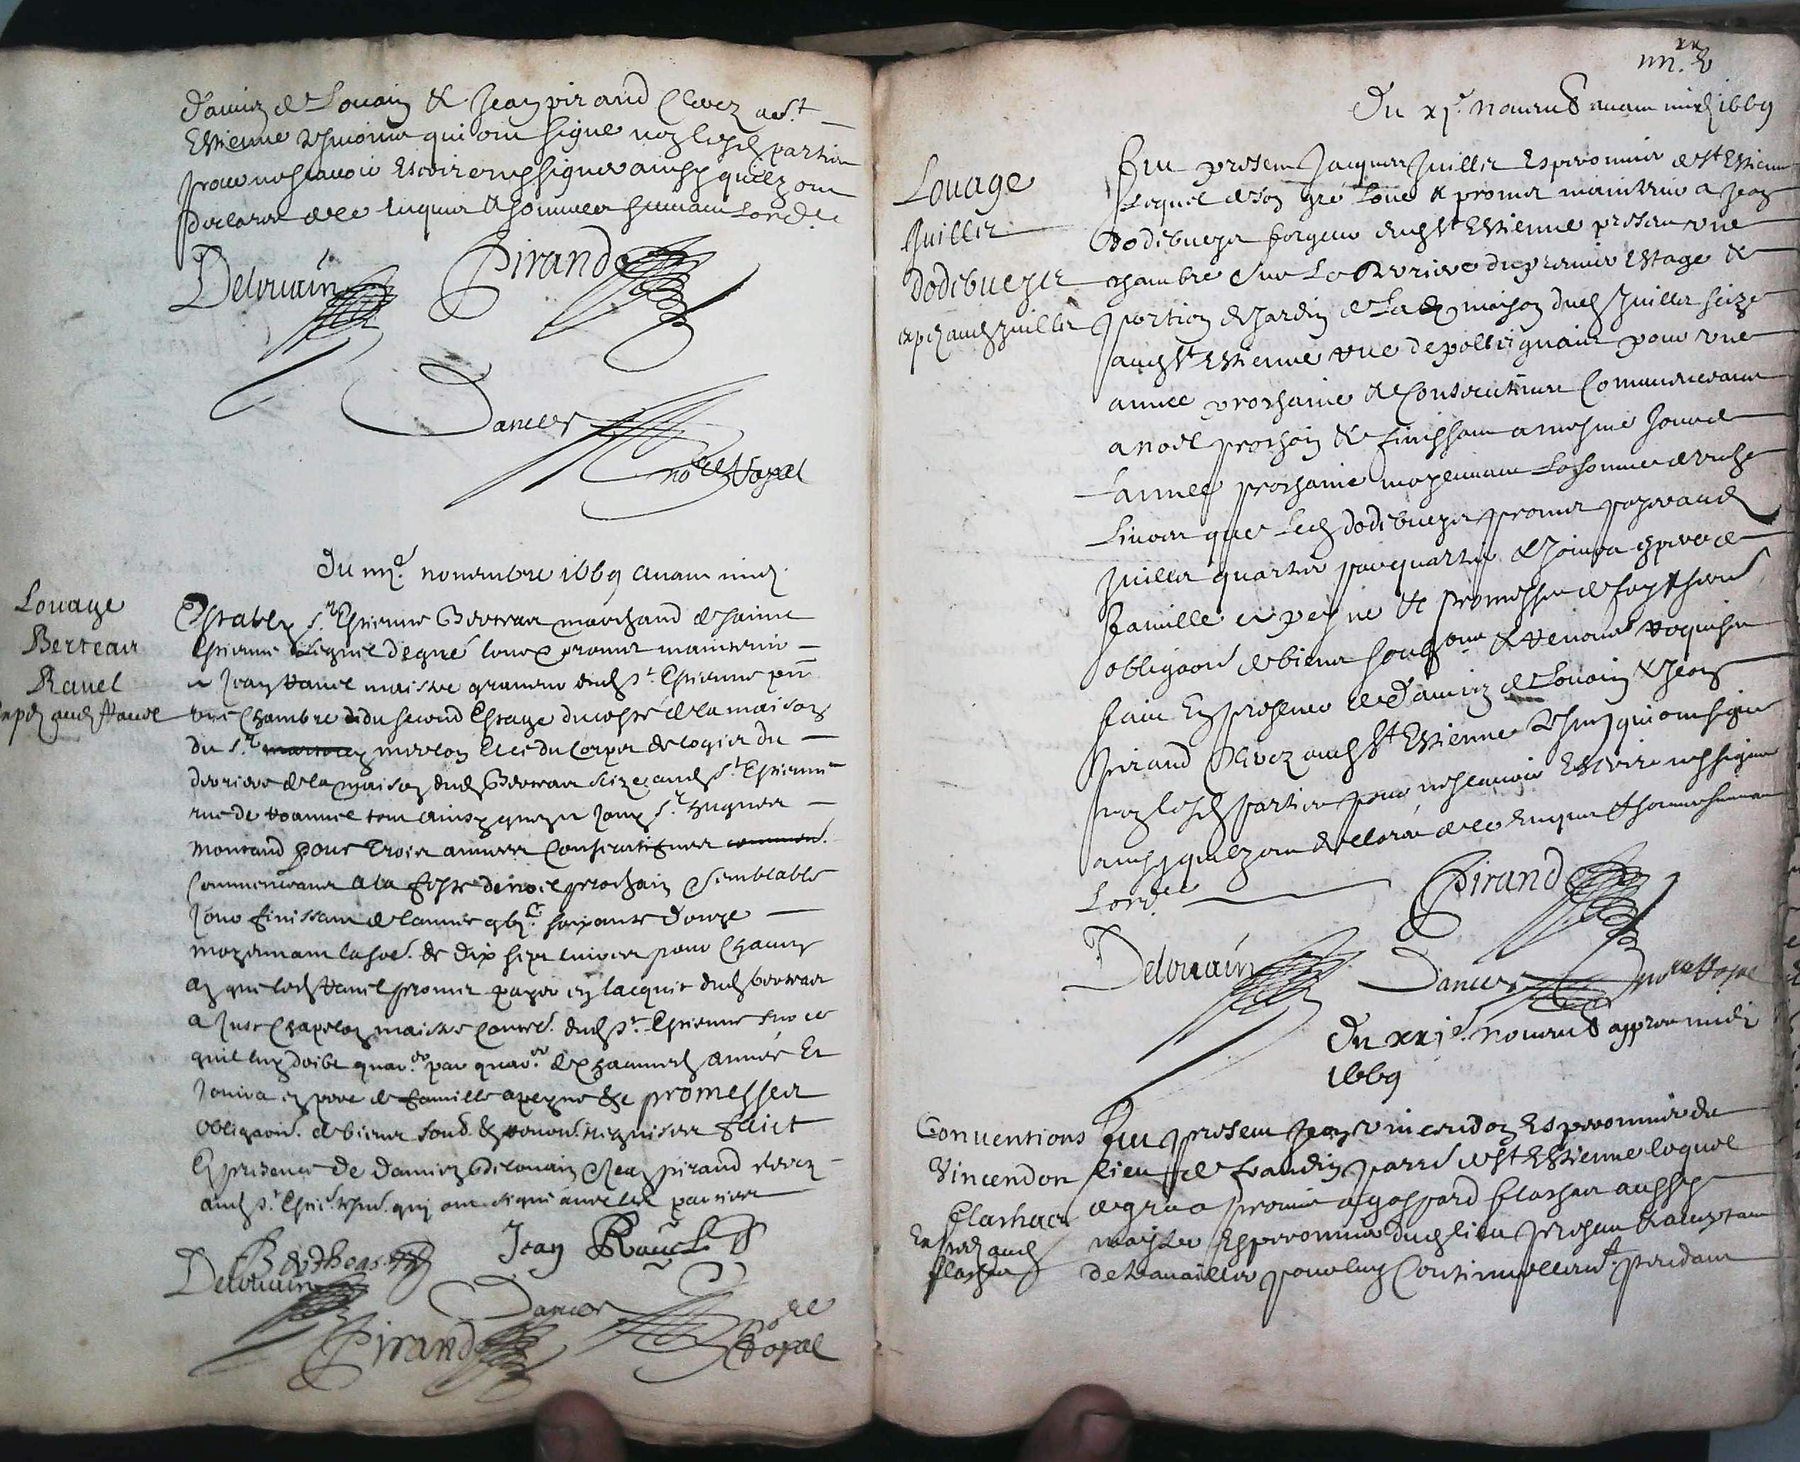 damien de Louain & Jean pirand Clercz aud st
Estienne tesmoins qui ont signe non lesd parties
pour ne scavoir Escrire ny signer ainsy quilz ont
Declaré de ce Enquis & sommes suivant Lord.ce
Delouain
Pirand
Dancer
no.re Royal
Du iiij.e novembre 1669 avant midy
Louage
Berteau
Ravel
exped aud Ravel
Estably s.r Estienne Berteau marchand de saint
Estienne Lequel de gré loue & promet maintenir
a Jean Ravel maistre graveur dud st Estienne pnt
une Chambre du second Estage du costé de la maison
du s.r merlon Et le du Corps de logis du
derriere de la maison dud Berteau size aud s.t Estienne
rue de Roannel tout ainsy quen jouy s.r hugues
Montaud pour trois années Consecutives
Commenceant a la feste de noel prochain & semblable
Jour finissant de lannée soixante douze
moyennant la som. de dix sept livres pour Chacun
an que led Ravel promet payer en lacquit dud berteau
a Just Chapelon maistre dud s.t Estienne sur ce
quil luy doibt quar.er par quar.er de chacune année Et
Jouira en pere de famille a peyne &c promesses
obliga.on de biens soub. & renon. requises faict
En presence de damien Delouain & Jean pirand clercz
aud s.t Esti.e tesm. qui ont signé avec les parties
Bertheas
Jean Ravel
Delouain
Dancer
Pirand
no.re Royal
Du xj.e novemb avant midy 1669
Louage
Juillet
Dodebueyer
exped aud Juillet
Fut present Jacques Juillet Esperonnier de st Estienne
Lequel de son gré Loue & promet maintenir a Jean
Dodebueyer forgeur dud st Estienne present une
chambre sur Le derriere du premier Estage &
portion de Jardin de la maison dud Juillet seize
aud st Estienne rue de pollignais pour une
année prochaine & Consecutive Commenceant
a noel prochain & finissant a mesme Jour de
Lannée prochaine moyennant La somme de
Livres que Led dodebueyer promet payer aud
Juillet quartier par quartier & Jouira en pere de
famille a peyne & promesses de foy & serm
obligaon de biens soubz.ons & renonc.s requises
faict En presence de damien de Louain & Jean
pirand Clercz aud st Estienne tesm. qui ont signe
non lesd parties pour ne scavoir Escrire ny signer
ainsy quilz ont declaré de ce Enquis & sommes suivant
Lord.ce
Pirand
Delouain
Dancer
no.re Royal
Du xxj.e novemb appres midi
1669
Conventions
Vincendon
Flachac
Exped aud
flachac
Fut present Jean vincendon Esperonnier du
lieu de parr. de st Estienne lequel
de gré a promis a gaspard flachac aussy
maistre Esperonnier dud lieu present & acceptant
de travailler pour luy Continuellem.t pendant